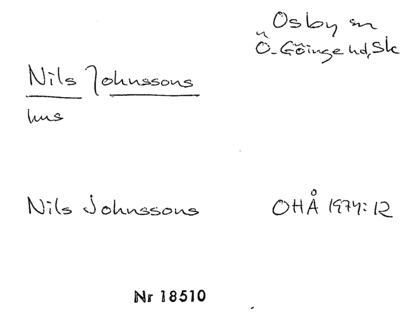 Osby sn
Ö. Göinge hd, Sk
Nils Johnssons
hus
Nils Johnssons
OHÅ 1974:12
Nr 18510